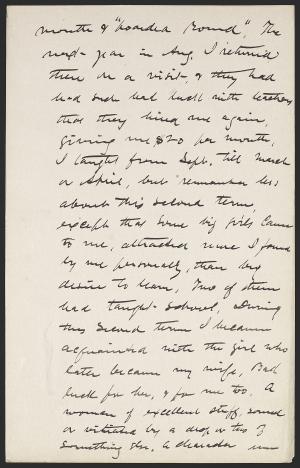 month & "boarded round". The
next year in Aug. I returned
there on a visit, & they had
had such bad luck with teachers
that they hired me again,
giving me $20 per month,
I taught from Sept. till March
or April, but remember less
about this second term,
except that some big girls came
to me, attracted more I found
by me personally, than by
desire to learn. Two of them
had taught school. During
this second term I became
acquainted with the girl who
later became my wife. Bad
luck for her, & for me too. A
woman of excellent stuff, sound
or vitiated by a drop or two of
something else. A character